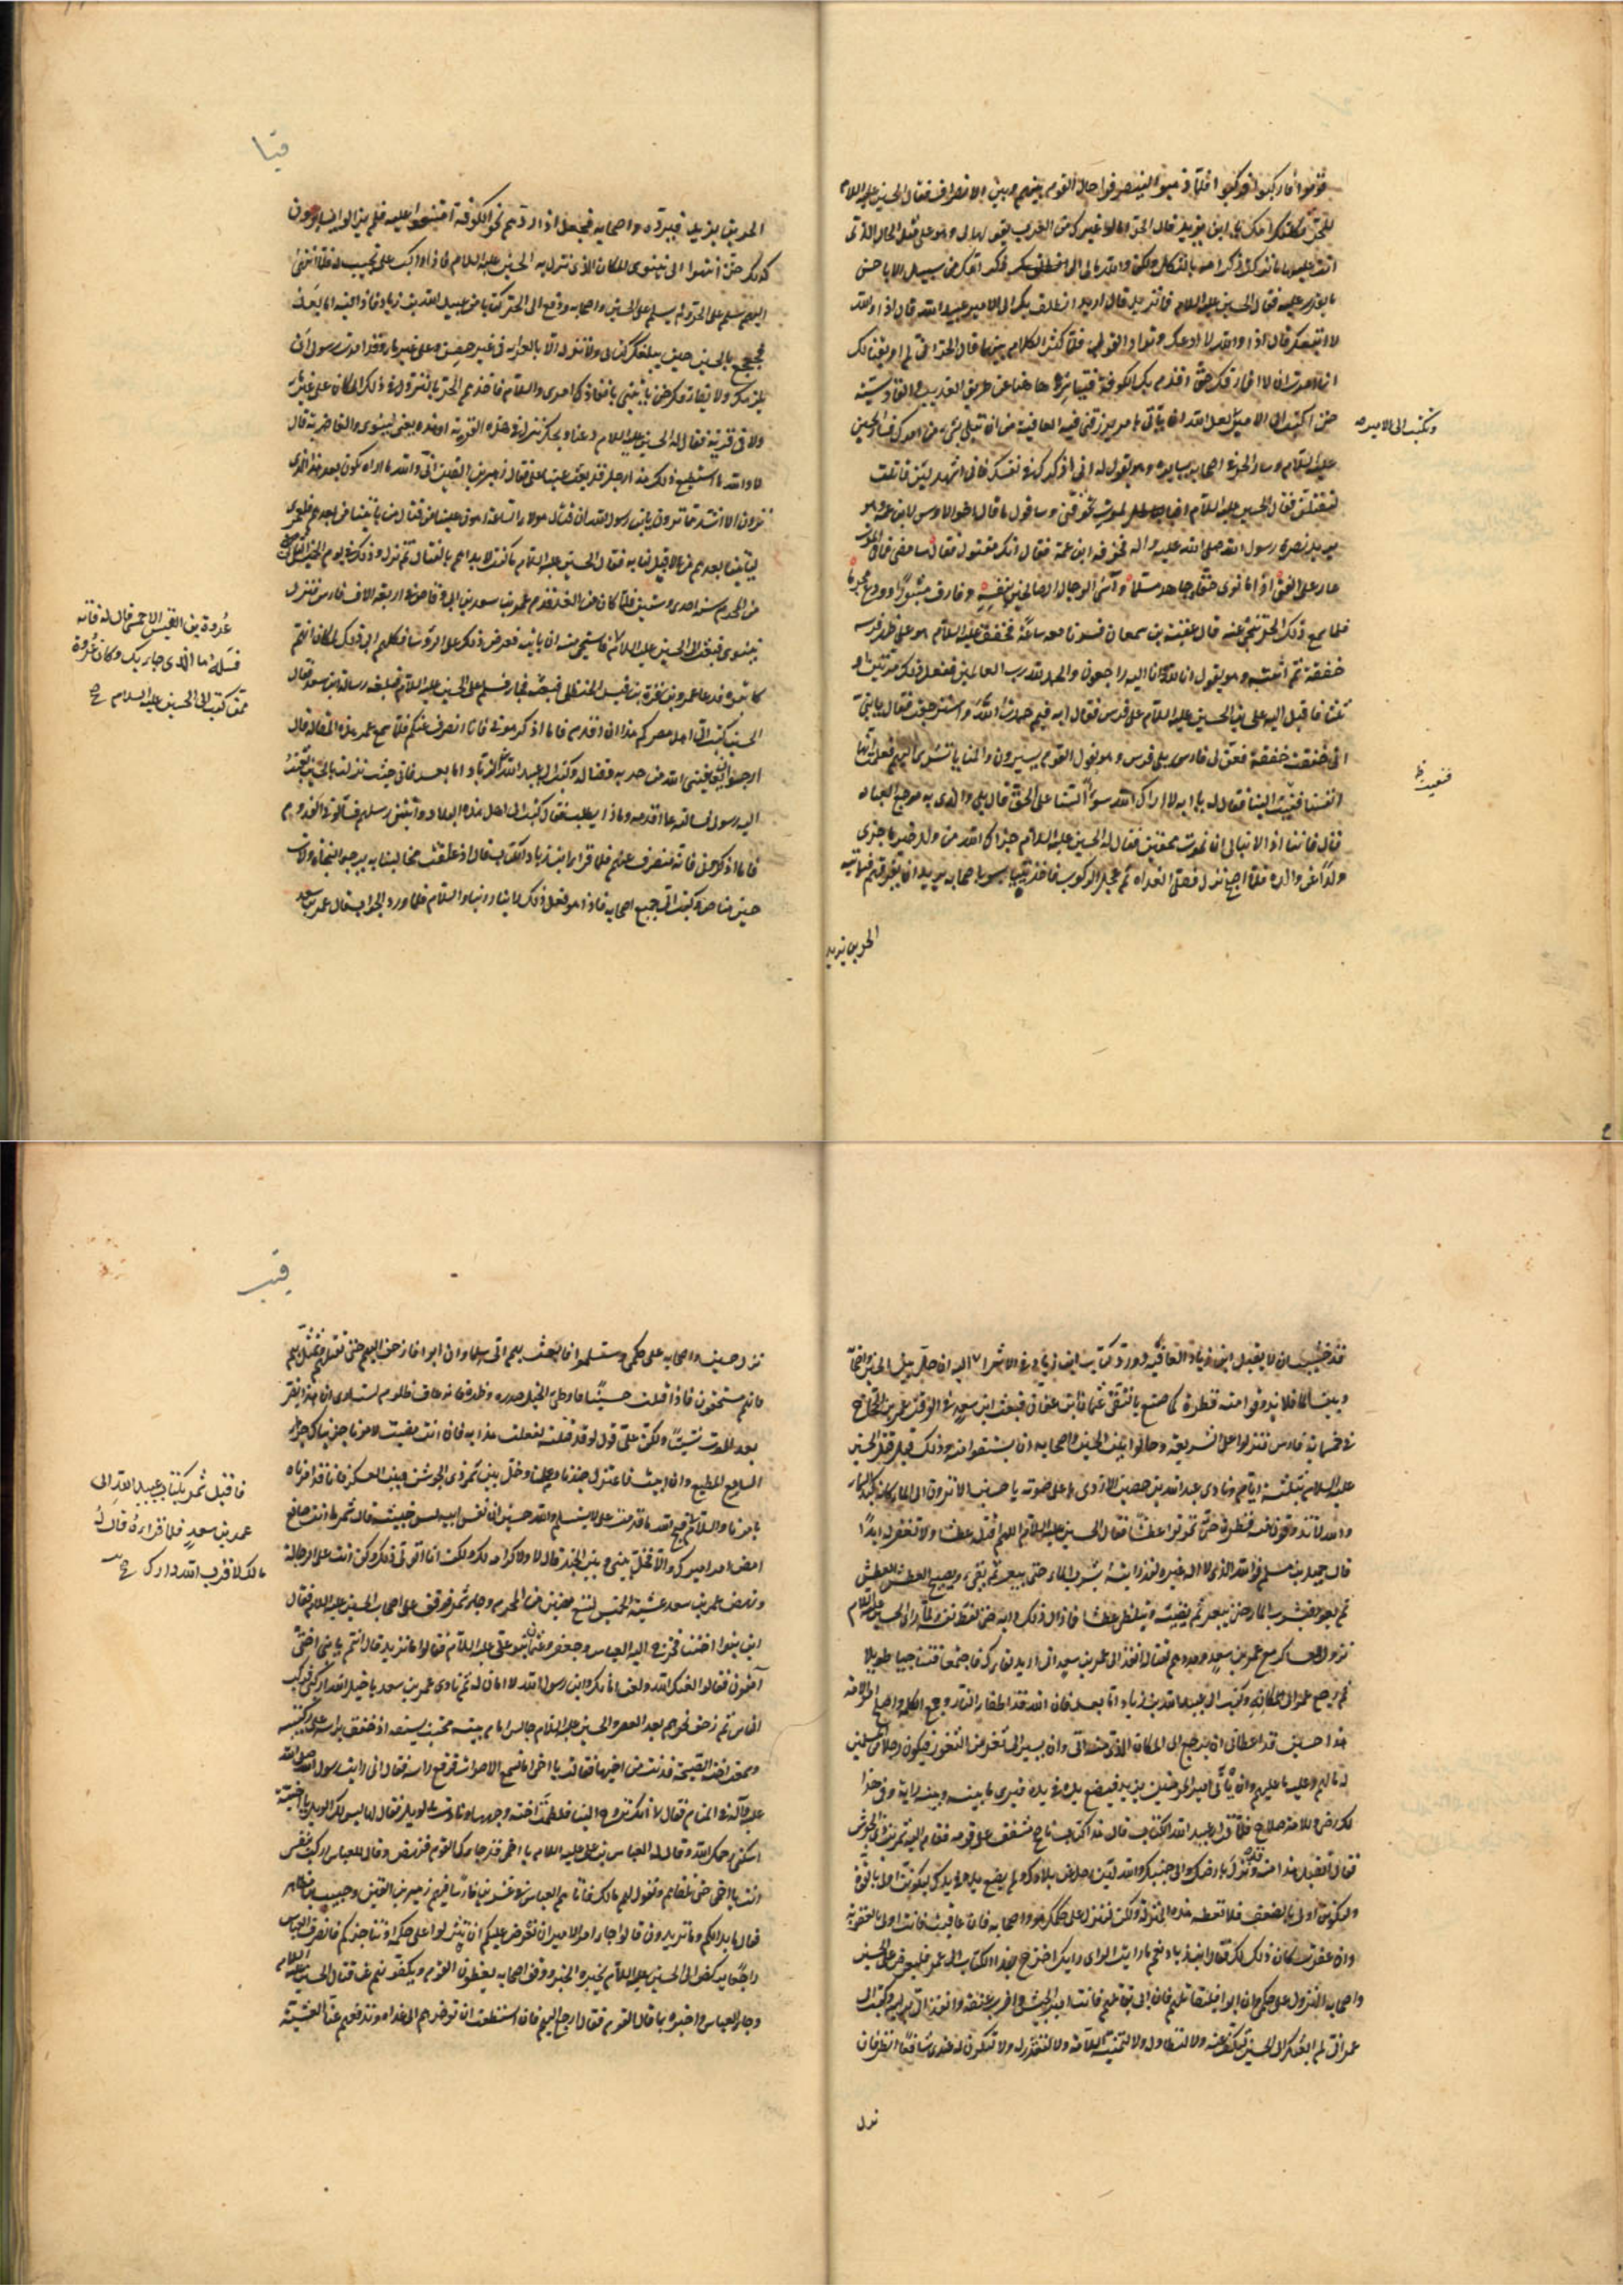 قوموا فاركبوا فركبوا فلما ذهبوا لينصرفوا حال القوم بينهم وبين الانصراف فقال الحسين عليه السلام
للحر ثكلتك امك ما تريد قال الحر اما لو غيرك من العرب يقولها لي وهو على مثل الحال التي
انت عليها ما تركت ذكر امه بالثكل ولكن والله مالي الى ذكر امك من سبيل الا باحسن
ما يقدر عليه فقال الحسين عليه السلام فما تريد قال اريد ان انطلق بك الى الامير عبيد الله قال اذا والله
لا اتبعك قال اذا والله لا ادعك وترادا القول فلما كثر الكلام بينهما قال الحر اني لم اومر بقتالك
انما امرت ان لا افارقك حتى اقدم بك الكوفة فتياسر هاهنا عن طريق العذيب والقادسية
وتكتب الى الامير
حتى اكتب الى الامير لعل الله ان ياتي بامر يرزقني فيه العافية من ان ابتلي بشيء من امرك فسار الحسين
عليه السلام وسار الحر في اصحابه يسايره وهو يقول له اني اذكرك الله في نفسك فاني اشهد لئن قاتلت
لتقتلن فقال الحسين عليه السلام افبالموت تخوفني وساقول ما قال اخو الاوس لابن عمه وهو
يريد نصرة رسول الله صلى الله عليه واله فخوفه ابن عمه فقال انك مقتول فقال سامضي فما بالموت
عار على الفتى اذا ما نوى حقا وجاهد مسلما وآسى الرجال الصالحين بنفسه وفارق مثبورا وودع مجرما
فلما سمع ذلك الحر تنحى عنه قال عقبة بن سمعان فسرنا معه ساعة فخفق عليه السلام وهو على ظهر فرسه
خفقة ثم انتبه وهو يقول انا لله وانا اليه راجعون والحمد لله رب العالمين ففعل ذلك مرتين او
ثلثا فاقبل اليه علي بن الحسين عليه السلام على فرس فقال ابه فيم حمدت الله واسترجعت فقال يا بني
اني خفقت خفقة فعن لي فارس على فرس وهو يقول القوم يسيرون والمنايا تسري اليهم فعلمت انها
انفسنا نعيت الينا فقال له يا ابه لا اراك الله سوءا السنا على الحق قال بلى والذي به مرجع العباد
قال فاننا اذا لا نبالي ان نموت محقين فقال له الحسين عليه السلام جزاك الله من ولد خير ما جزى
ولدا عن والده فلما اصبح نزل فصلى الغداة ثم عجل الركوب فاخذ يتياسر باصحابه يريد ان يفرقهم فياتيه
الحر بن يزيد
قيا
الحر بن يزيد فيرده واصحابه فجعل اذا ردهم نحو الكوفة امتنعوا عليه فلم يزالوا يتسايرون
كذلك حتى انتهوا الى نينوى المكان الذي نزل به الحسين عليه السلام فاذا راكب على نجيب له فلما انتهى
اليهم سلم على الحر ولم يسلم على الحسين واصحابه ودفع الى الحر كتابا من عبيد الله بن زياد فاذا فيه اما بعد
فجعجع بالحسين حين يبلغك كتابي ولا تنزله الا بالعراء في غير حصن وعلى غير ماء وقد امرت رسولي ان
يلزمك ولا يفارقك حتى ياتيني بانفاذك امري والسلام فاخذهم الحر بالنزول في ذلك المكان على غير ماء
ولا في قرية فقال له الحسين عليه السلام دعنا ويحك ننزل في هذه القرية او هذه يعني نينوى والغاضرية قال
لا والله ما استطيع ذلك هذا رجل قد بعث عينا علي فقال زهير بن القين اني والله ما اراه يكون بعد هذا الذي
ترون الا اشد مما ترون يا بن رسول الله ان قتال هولاء الساعة اهون علينا من قتال من ياتينا من بعدهم فلعمري
لياتينا بعدهم ما لا قبل لنا به فقال الحسين عليه السلام ما كنت لابداهم بالقتال ثم نزل وذلك في يوم الخميس الثاني
من المحرم سنة احدى وستين فلما كان من الغد قدم عمر بن سعد بن ابي وقاص في اربعة الاف فارس فنزل
نينوى فبعث الى الحسين عليه السلام
عروة بن القيس الاحمسي فقال له فاته
فسله ما الذي جاء بك وكان عروة
ممن كتب الى الحسين عليه السلام صح
فاستحيى منه ان ياتيه فعرض ذلك على الرؤسا فكلهم ابى ذلك لمكان انهم
كاتبوه فدعا عمر قرة بن قيس الحنظلي فبعثه فجاء وسلم على الحسين عليه السلام فبلغه رسالة ابن سعد فقال
الحسين كتب الي اهل مصركم هذا ان اقدم فاما اذ كرهتموني فانا انصرف عنكم فلما سمع عمر هذه المقالة قال
ارجوا ان يعافيني الله من حربه وقتاله وكتب الى عبيد الله بن زياد اما بعد فاني حيث نزلت بالحسين بعثت
اليه رسولي فسالته عما اقدمه وماذا يطلب فقال كتب الي اهل هذه البلاد واتتني رسلهم فسالوني القدوم
فاما اذ كرهوني فانا منصرف عنهم فلما قرا ابن زياد الكتاب قال الان اذ علقت مخالبنا به يرجوا النجاة ولات
حين مناص وكتب اليه جميع اصحابه فاذا هو فعل ذلك راينا راينا والسلام فلما ورد الجواب قال عمر بن سعد
قد خشيت ان لا يقبل ابن زياد العافية وورد كتاب ابن زياد في الاثر اليه ان حل بين الحسين واصحابه
وبين الماء فلا يذوقوا منه قطرة كما صنع بالتقي عثمان بن عفان فبعث ابن سعد في الوقت عمرو بن الحجاج
في خمسمائة فارس فنزلوا على الشريعة وحالوا بين الحسين واصحابه ان يستقوا منه وذلك قبل قتل الحسين
عليه السلام بثلثة ايام ونادى عبد الله بن حصين الازدي باعلى صوته يا حسين الا تنظرون الى الماء كانه كبد السماء
والله لا تذوقون منه قطرة حتى تموتوا عطشا فقال الحسين عليه السلام اللهم اقتله عطشا ولا تغفر له ابدا
قال حميد بن مسلم فوالله الذي لا اله غيره لقد رايته يشرب الماء حتى يبغر ثم يقيء ويصيح العطش العطش
ثم يعود فيشرب الماء حتى يبغر ثم يقيئه ويتلظى عطشا فما زال ذلك دابه حتى لفظ نفسه ولما راى الحسين عليه السلام
نزول العساكر مع عمر بن سعد ومددهم لقتاله انفذ الى عمر بن سعد اني اريد لقاءك فاجتمعا فتناجيا طويلا
ثم رجع عمر الى مكانه وكتب الى عبيد الله بن زياد اما بعد فان الله قد اطفا النائرة وجمع الكلمة واصلح امر الامة
هذا حسين قد اعطاني ان يرجع الى المكان الذي منه اتى وان يسير الى ثغر من الثغور فيكون رجلا من المسلمين
له ما لهم وعليه ما عليهم وان ياتي امير المومنين يزيد فيضع يده في يده فيرى ما بينه وبينه رايه وفي هذا
لك رضى وللامة صلاح فلما قرا عبيد الله الكتاب قال هذا كتاب ناصح مشفق على قومه فقام اليه شمر بن ذي الجوشن
فقال اتقبل هذا منه وقد نزل بارضك والى جنبك والله لئن رحل من بلادك ولم يضع يده في يدك ليكونن اولى بالقوة
ولتكونن اولى بالضعف فلا تعطه هذه المنزلة ولكن لينزل على حكمك هو واصحابه فان عاقبت فانت اولى بالعقوبة
وان عفوت كان ذلك لك فقال ابن زياد نعم ما رايت الراي رايك اخرج بهذا الكتاب الى عمر فليعرض على الحسين
واصحابه النزول على حكمي فان ابوا فليقاتلهم فان ابى ان يقاتلهم فانت امير الجيش واضرب عنقه وانفذ الي براسه وكتب الى
عمر اني لم ابعثك الى الحسين لتكف عنه ولا لتطاوله ولا لتمنيه السلامة ولا لتعتذر له ولا لتكون له عندي شافعا انظر فان
نزل
قيب
نزل حسين واصحابه على حكمي واستسلموا فابعث بهم الي سلما وان ابوا فازحف اليهم حتى تقتلهم وتمثل بهم
فانهم مستحقون فاذا قتلت حسينا فاوطئ الخيل صدره وظهره فانه عاق ظلوم لست ارى ان هذا يضر
بعد الموت شيئا ولكن علي قول لو قد قتلته لفعلت هذا به فان انت مضيت لامرنا جزيناك جزاء
السامع المطيع وان ابيت فاعتزل جندنا وعملنا وخل بين شمر ذي الجوشن وبين العسكر فانا قد امرناه
بامرنا والسلام
فاقبل شمر بكتاب عبيد الله الى
عمر بن سعد فلما قراه قال له
مالك لا قرب الله دارك صح
قبح الله ما قدمت علي لا يستسلم والله حسين ان نفس ابيه لبين جنبيه قال شمر ما انت صانع
امض امر اميرك والا فخل بيني وبين الجند قال لا ولا كرامة لك ولكن انا اتولى ذلك وكن انت على الرجالة
ونهض عمر بن سعد عشية الخميس لتسع مضين من المحرم وجاء شمر فوقف على اصحاب الحسين عليه السلام فقال
اين بنوا اختنا فخرج اليه العباس وجعفر وعثمان بنو علي عليه السلام فقالوا ما تريد قال انتم يا بني اختي
آمنون فقالوا لعنك الله ولعن امانك اتؤمننا وابن رسول الله لا امان له ثم نادى عمر بن سعد يا خيل الله اركبي فركب
الناس ثم زحف نحوهم بعد العصر والحسين عليه السلام جالس امام بيته محتب بسيفه اذ خفق براسه على ركبتيه
وسمعت اخته الصيحة فدنت من اخيها فقالت يا اخي اما تسمع الاصوات فرفع راسه فقال اني رايت رسول الله صلى الله
عليه وآله في المنام فقال لي انك تروح الينا فلطمت اخته وجهها ونادت بالويل فقال لها ليس لك الويل يا اخية
اسكتي رحمك الله وقال له العباس بن علي عليه السلام يا اخي قد جاءك القوم فنهض وقال للعباس اركب بنفسي
انت يا اخي حتى تلقاهم وتقول لهم مالكم فاتاهم العباس في نحو عشرين فارسا فيهم زهير بن القين وحبيب بن مظاهر
فقال ما بدا لكم وما تريدون قالوا جاء امر الامير ان نعرض عليكم ان تنزلوا على حكمه او نناجزكم فانصرف العباس
راجعا يركض الى الحسين عليه السلام يخبره الخبر ووقف اصحابه يعظون القوم ويكفونهم عن قتال الحسين عليه السلام
وجاء العباس واخبره بما قال القوم فقال ارجع اليهم فان استطعت ان توخرهم الى غداة وتدفعهم عنا العشية